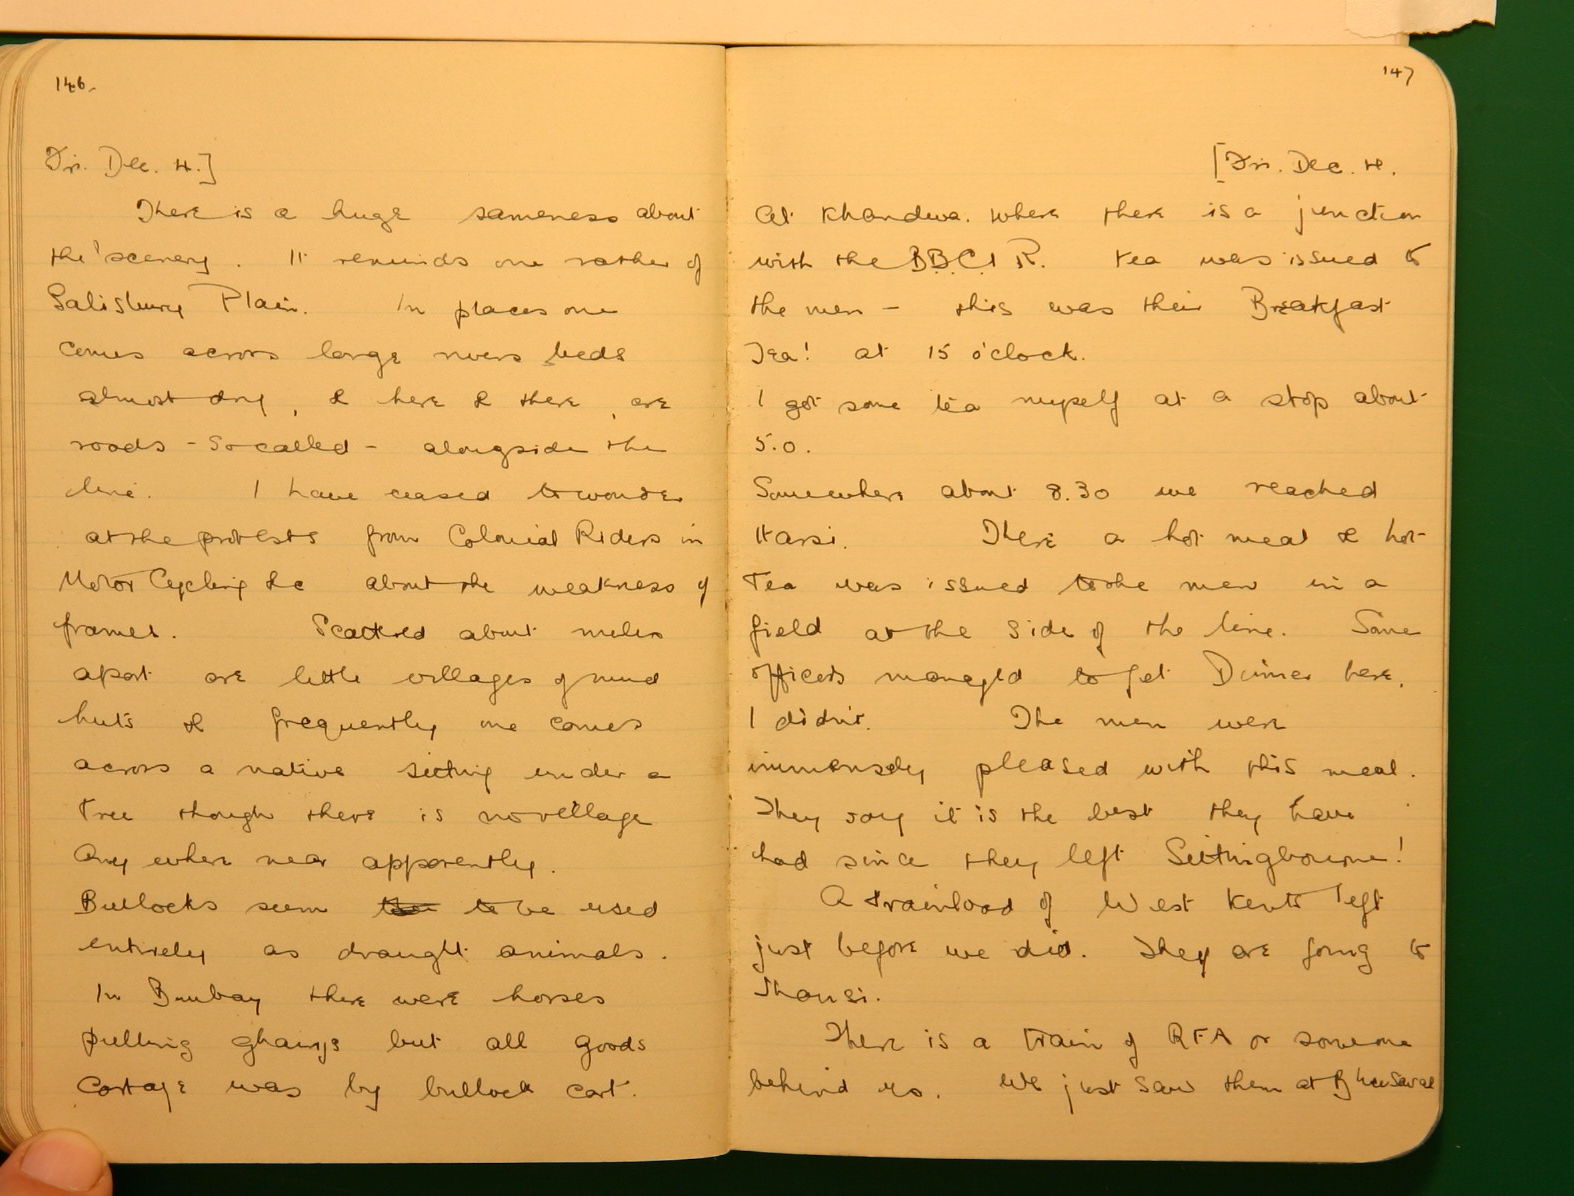 146.
Fri. Dec. 4.]
There is a huge sameness about
the scenery. It reminds one rather of
Salisbury Plain. In places one
comes across large rivers beds
almost dry, & here & there, are
roads - so called - alongside the
line. I have ceased to wonder
at the protests from Colonial Riders in
Motor Cycling &c about the weakness of
frames. Scattered about miles
apart are little villages of mud
huts & frequently one comes
across a native sitting under a
Tree though there is no village
Any where near apparently.
Bullocks seem to be used
entirely as draught animals.
In Bombay there were horses
pulling gharrys but all goods
Cartage was by bullock cart.
147
[Fri. Dec. 4.
At Khandwa. where there is a junction
with the B.B.C.I R. tea was issued to
the men - this was their Breakfast
Tea! at 15 o'clock.
I got some tea myself at a stop about
5.0.
Somewhere about 8.30 we reached
Itarsi. There a hot meal & hot
Tea was issued to the men in a
field at the side of the line. Some
officers managed to get Dinner here,
I didn't. The men were
immensely pleased with this meal.
They say it is the best they have
had since they left Sittingbourne!
A trainload of West Kents left
just before we did. They are going to
Jhansi.
There is a train of RFA or someone
behind us. We just saw them at Bhusaval